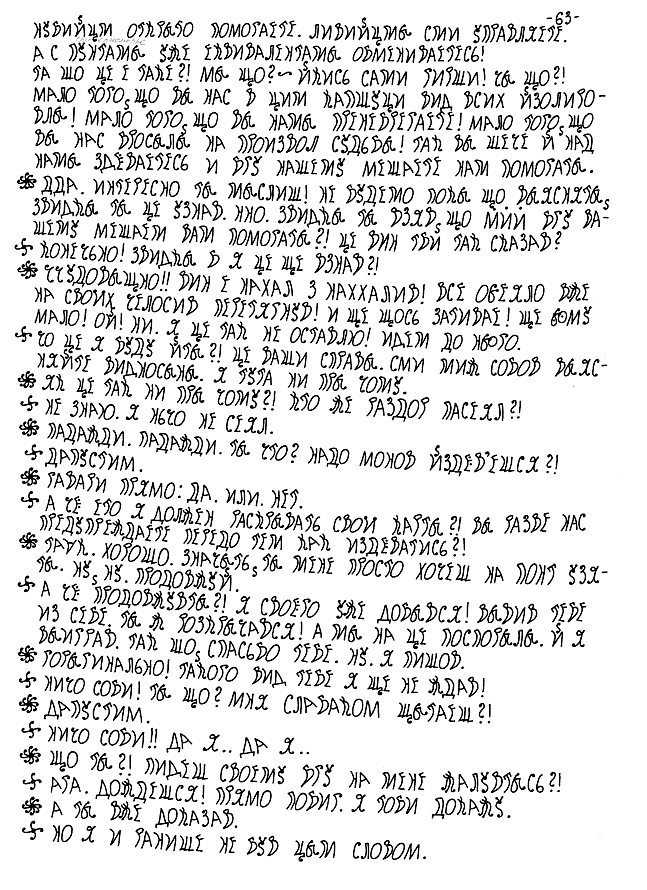 -63-
ПОМОГАЕТЕ. СИМИ УПРАВЛЯЕТЕ.
А С УЖЕ ЕКВИВАЛЕНТАМЫ ОБМЕНИВАЕТЕСЬ!
ТА ШО ЦЕ Е ТАКЕ?! МЫ ЩО? – САМИ ЧЫ ЩО?!
МАЛО ТОГО, ЩО ВЫ НАС В ЦИМ КАПШУЦИ ВИД ВСИХ ЙЗОЛИРО-
ВЛЫ! МАЛО ТОГО, ЩО ВЫ НАМЫ ПРЕНЕБРЕГАЕТЕ! МАЛО ТОГО, ЩО
ВЫ НАС БРОСЫЛЫ НА ПРОИЗВОЛ СУДЬБЫ! ТАК ВЫ ЩЕЧЕ Й НАД
НАМЫ ЗДЕВАЕТЕСЬ И БГУ НАШЕМУ МЕШАЕТЕ НАМ ПОМОГАТЫ.
ДДА. ИНТЕРЕСНО ТЫ МЫСЛИШ! НЕ БУДЕМО ПОКЫ ЩО. ВЫЯСНЯТЫ,
ЗВИДКЫ ТЫ ЦЕ УЗНАВ. ННО. ЗВИДКЫ ТЫ ВЗЯВ, ЩО МИЙ БГУ ВА-
ШЕМУ МЕШАЕТ ВАМ ПОМОГАТЫ?! ЦЕ ВИН ТВИ ТАК СКАЗАВ?
КОНЕЧЬНО! ЗВИДКЫ Б Я ЦЕ ЩЕ ВЗНАВ?!
ЧЧУДОВЫЩНО!! ВИН Е НАХАЛ З НАХХАЛИВ! ВСЕ ОДЕЯЛО ВЖЕ
НА СВОИХ ЧЕЛОСИВ ПЕРЕТЯГНУВ! И ЩЕ ЩОСЬ ЗАТИВАЕ! ЩЕ ЙОМУ
МАЛО! ОЙ! НИ. Я ЦЕ ТАК НЕ ОСТАВЛЮ! ИДЕМ ДО НЬОГО.
ЧО ЦЕ Я БУДУ ЙТЫ?! ЦЕ ВАШИ СПРАВЫ. СМИ МИЖ СОБОВ ВЫЯС-
НЯЙТЕ ВИДНОСЫНЫ. Я ТУТА НИ ПРЫ ЧОМУ.
ЯК ЦЕ ТАК НИ ПРЫ ЧОМУ?! ХТО ЖЕ РАЗДОР ПАСЕЯЛ?!
НЕ ЗНАЮ. Я НЬЧО НЕ СЕЯЛ.
ПАДАЖДИ. ПАДАЖДИ. ТЫ ЧТО? НАДО МОНОВ ЙЗДЕВ'ЕШСЯ?!
ДАПУСТИМ.
ГАВАРИ ПРЯМО: ДА. ИЛИ. НЕТ.
А ЧЕ ЕТО Я ДОЛЖЕН РАСКРЫВАТЬ СВОИ КАРТЫ?! ВЫ РАЗВЕ НАС
ПРЕДУПРЕЖДАЕТЕ ПЕРЕДО ТЕМ КАК ИЗДЕВАТИСЬ?!
ТАҐК. ХОРОШО. ЗНАЧЫТЬ, ТЫ МЕНЕ ПРОСТО ХОЧЕШ НА ПОНТ УЗЯ-
ТЫ. НУ, НУ. ПРОДОВЖУЙ.
А ЧЕ ПРОДОВЖУВТЫ?! Я СВОЕГО УЖЕ ДОБЫВСЯ! ВЫВИВ ТЕБЕ
ИЗ СЕБЕ. ТЫ Ж РОЗКРЫЧАВСЯ! А МЫ НА ЦЕ ПОСПОРЫЛЫ. Й Я
ВЫИГРАВ. ТАК ЩО, СПАСЬБО ТЕБЕ. НУ. Я ПИШОВ.
ТАКОГО ВИД ТЕБЕ Я ЩЕ НЕ ЖДАВ!
НИЧО СОБИ! ТЫ ЩО? МНЯ СЛАБАКОМ ЩЫТАЕШ?!
ДАПУСТИМ.
НИЧО СОБИ!! ДА Я.. ДА Я..
ЩО ТЫ?! ПИДЕШ СВОЕМУ БГУ НА МЕНЕ ЖАЛУВТЫСЬ?!
АГА. ДОЖДЕШСЯ! ПРЯМО ПОБИГ. Я ТОБИ ДОКАЖУ.
А ТЫ ВЖЕ ДОКАЗАВ.
НО Я И РАНИШЕ НЕ БУВ ЦЫМ СЛОВОМ.